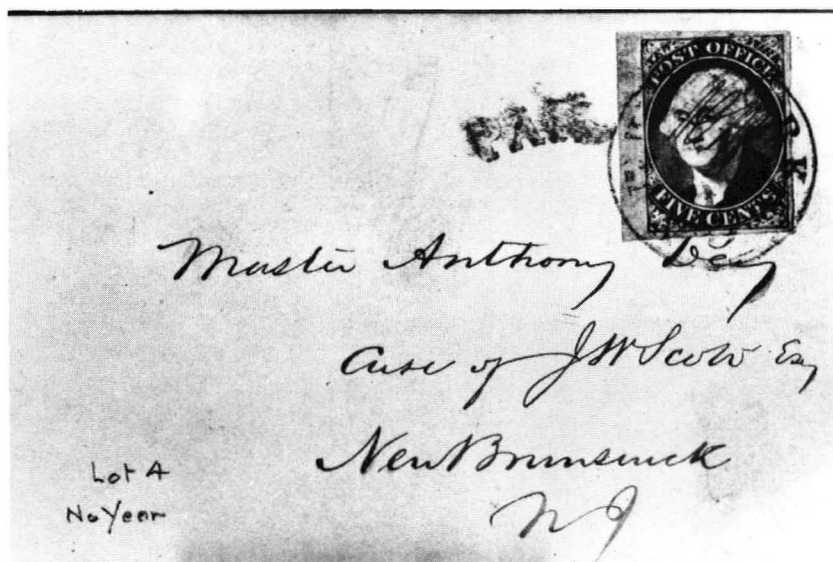 POST OFFICE
FIVE CENTS
PAID
Master Anthony Dey
Care of J W Scott Esq
New Brunswick
N J
Lot 4
No Year